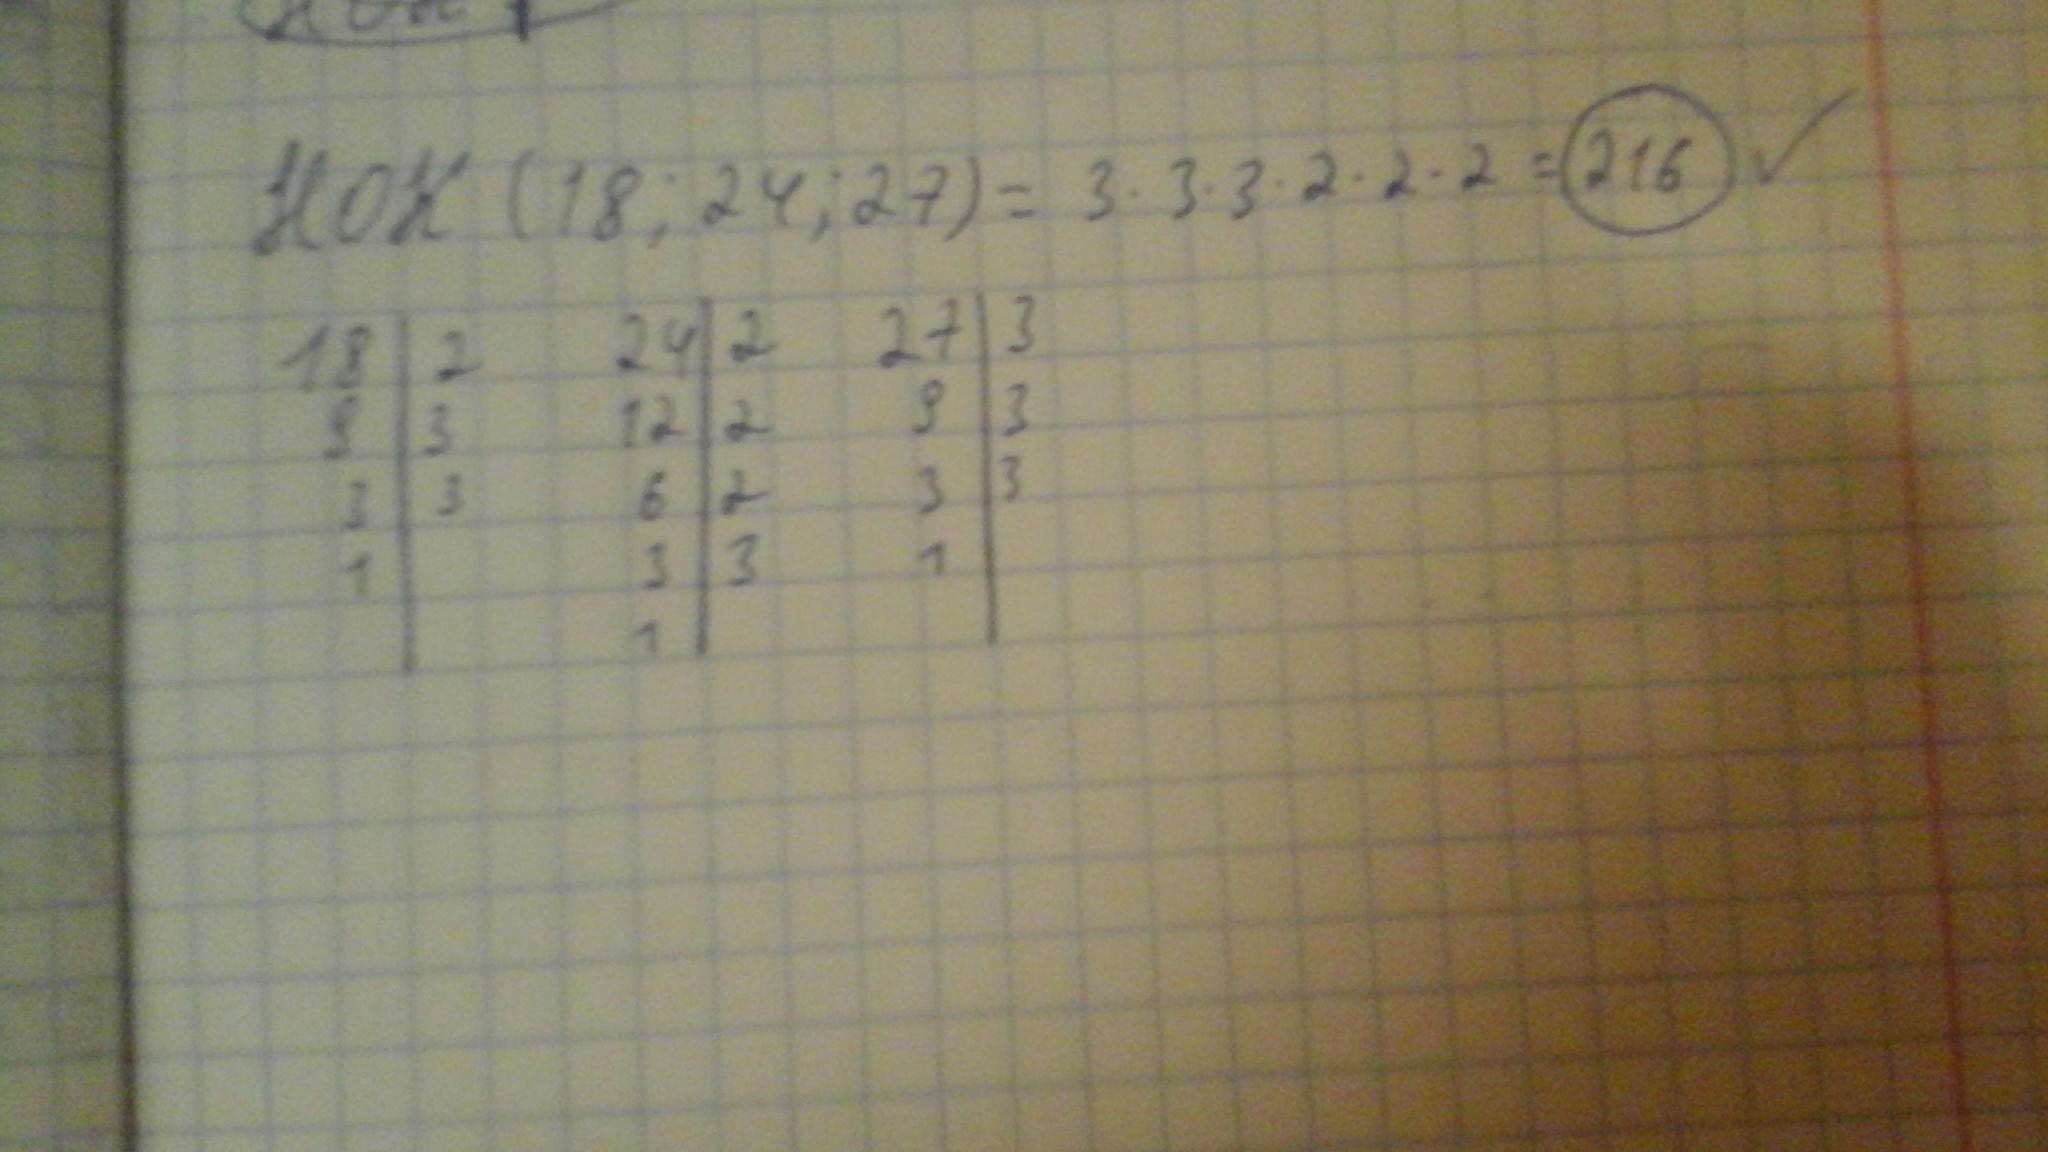 НОК (18; 24; 27) = 3 · 3 · 3 · 2 · 2 · 2 = 216 ✓
18 | 2 24 | 2 27 | 3
9 | 3 12 | 2 9 | 3
3 | 3 6 | 2 3 | 3
1 | 3 | 3 1 |
1 |